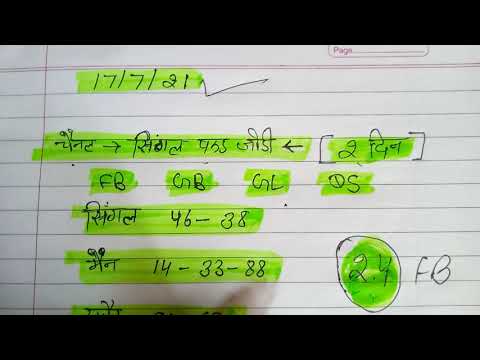 Page
17/7/21
चैनट → सिंगल एण्ड जोडी ← [ 2 दिन ]
FB GB GL DS
सिंगल 46 - 38
मैन 14 - 33 - 88
2.4 FB